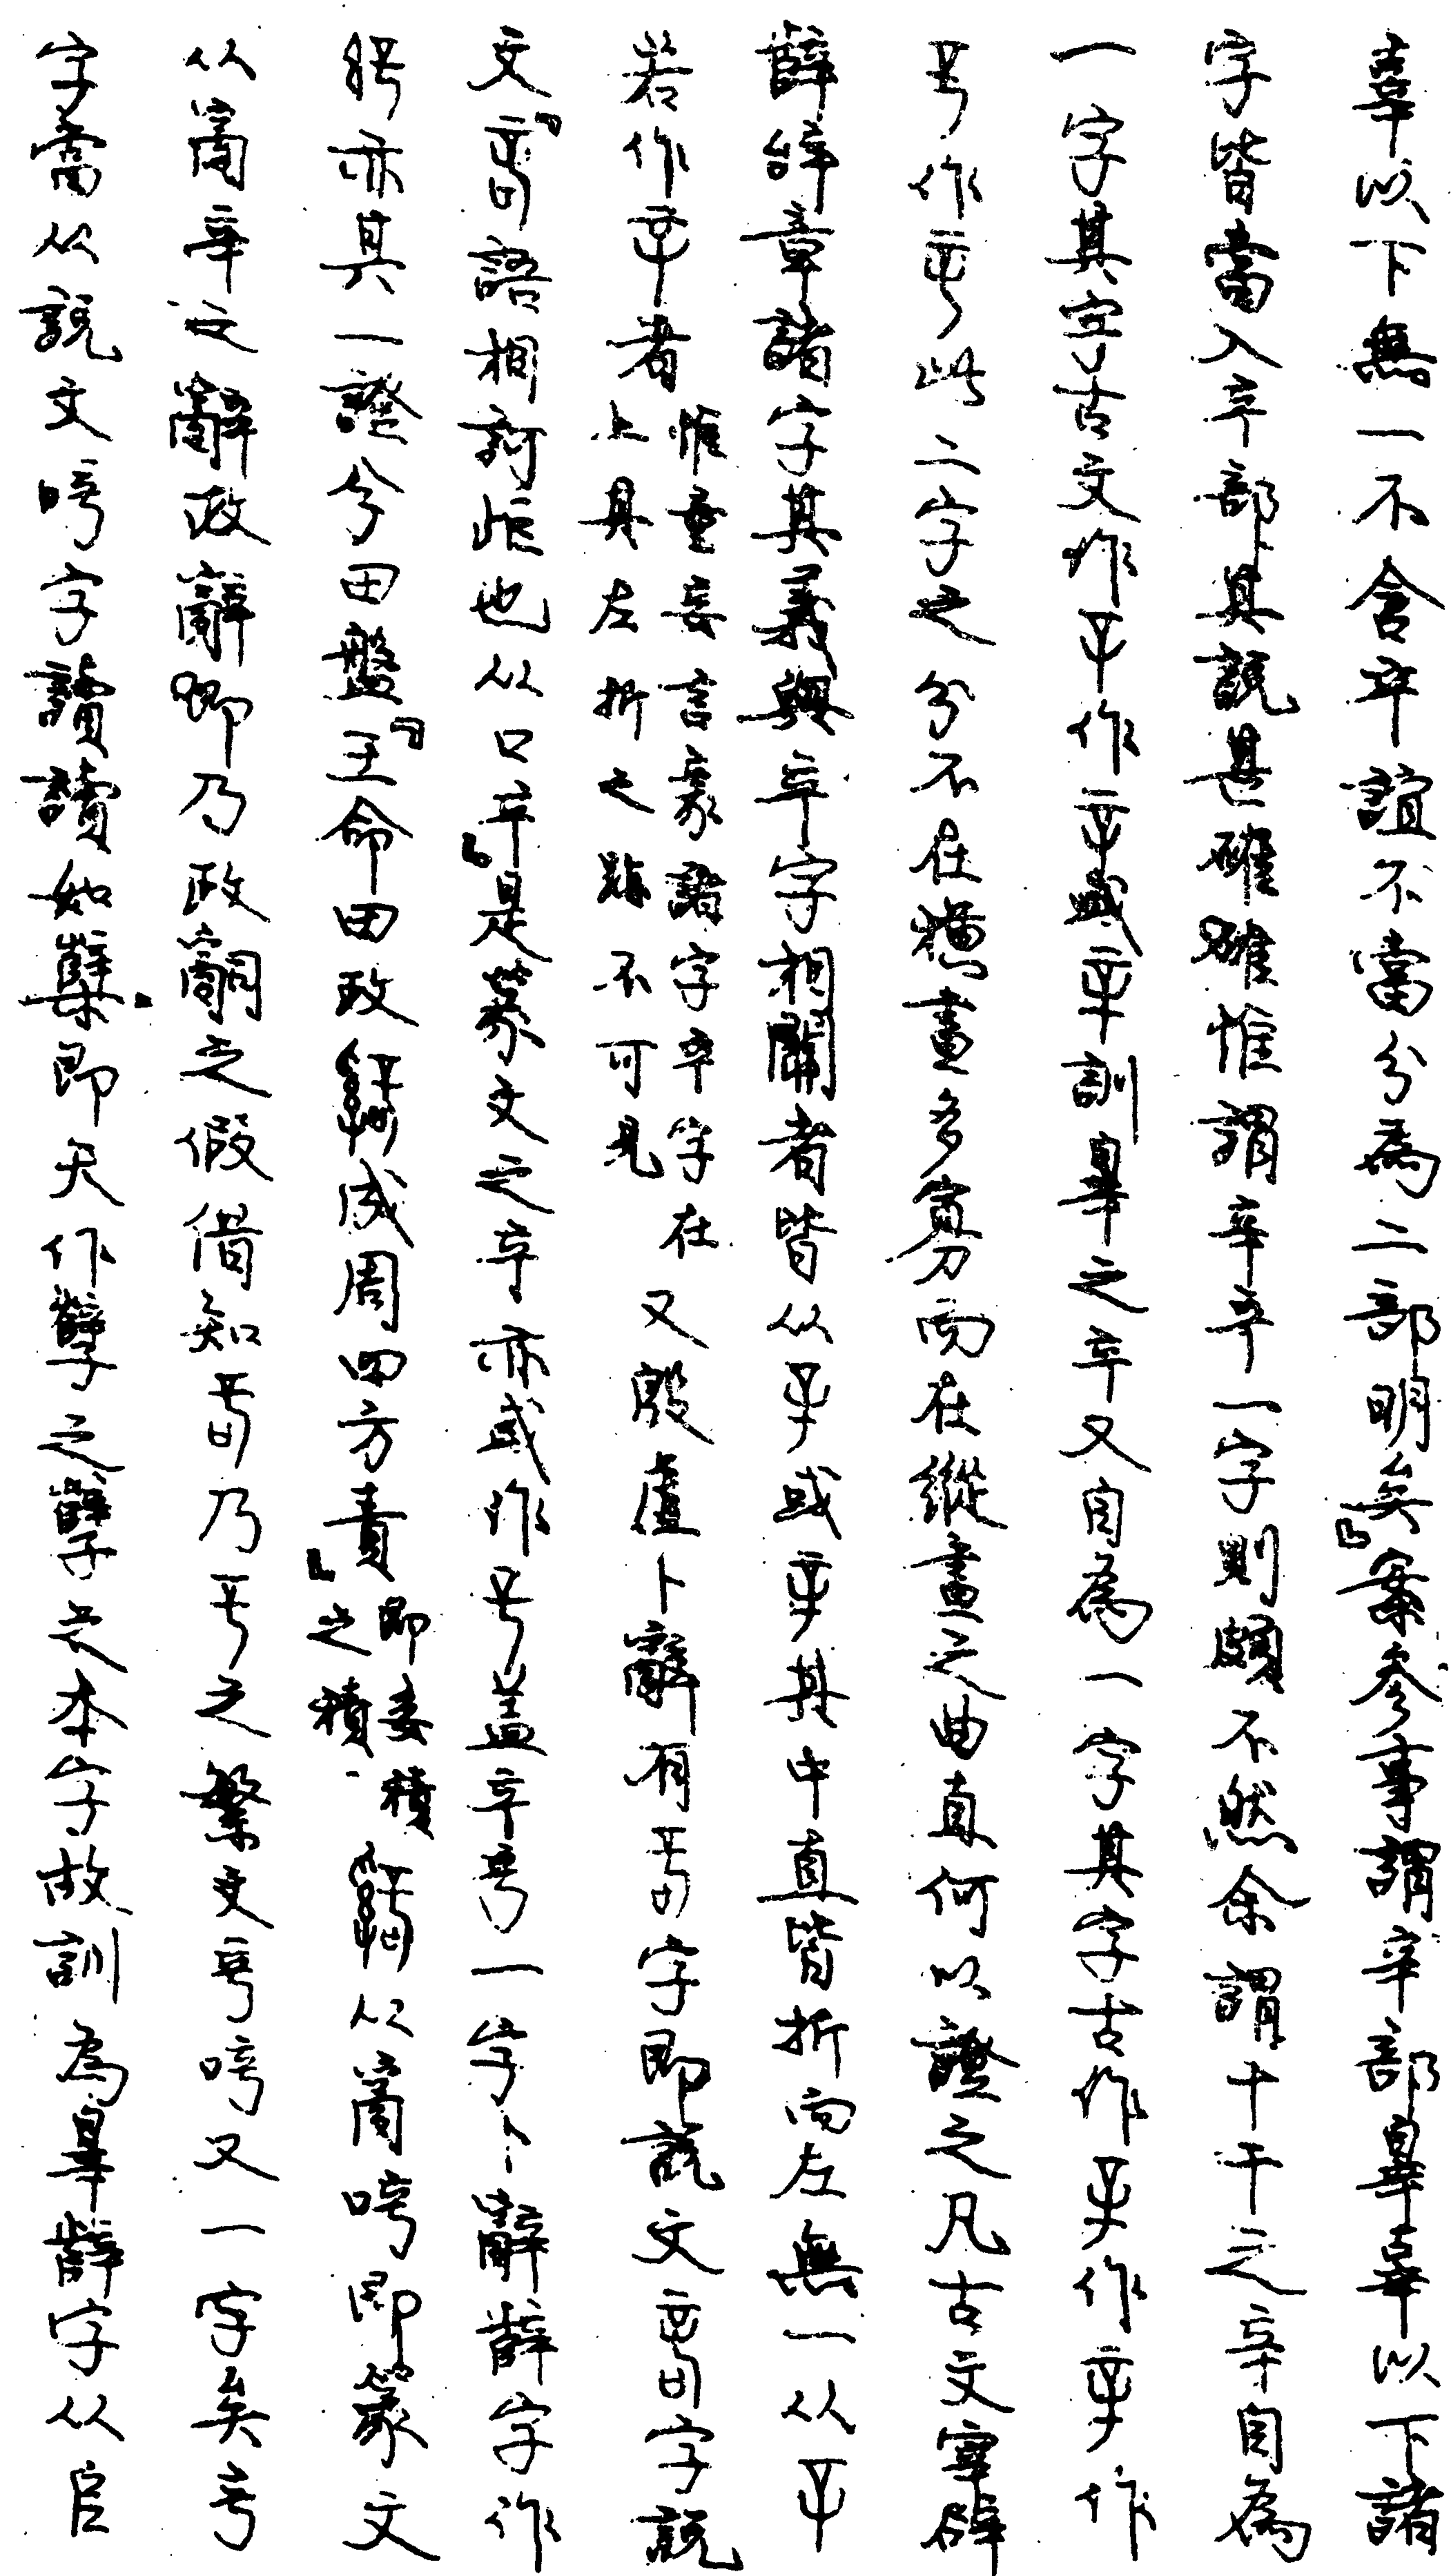 辜以下無一不含䇂誼不當分為二部明矣』案參事謂辛部辠辜以下諸
字皆當入䇂部其說甚確惟謂辛䇂一字則頗不然余謂十干之辛自為
一字其字古文作作或訓辠之䇂又自為一字其字古作作作
作此二字之分不在橫畫多寡而在縱畫之曲直何以證之凡古文宰辟
辥辝章諸字其義與䇂字相關者皆从或其中直皆折向左無一从
若作者惟童妾言豪諸字䇂字在上具左折之跡不可見又殷虛卜辭有字即說文䇂口字說
文『語相訶歫也从口䇂』是篆文之䇂亦或作蓋䇂䇂一字卜辭辥字作
亦其一證兮田盤『王命田政成周四方責』即委積之積从𤔔㖕即篆文
从𤔔辛之辭政辭即乃政嗣之假借知乃之繁文㖕又一字矣
字當从說文㖕字讀讀如櫱即天作孽之孽之本字故訓為辠辥字从㠯